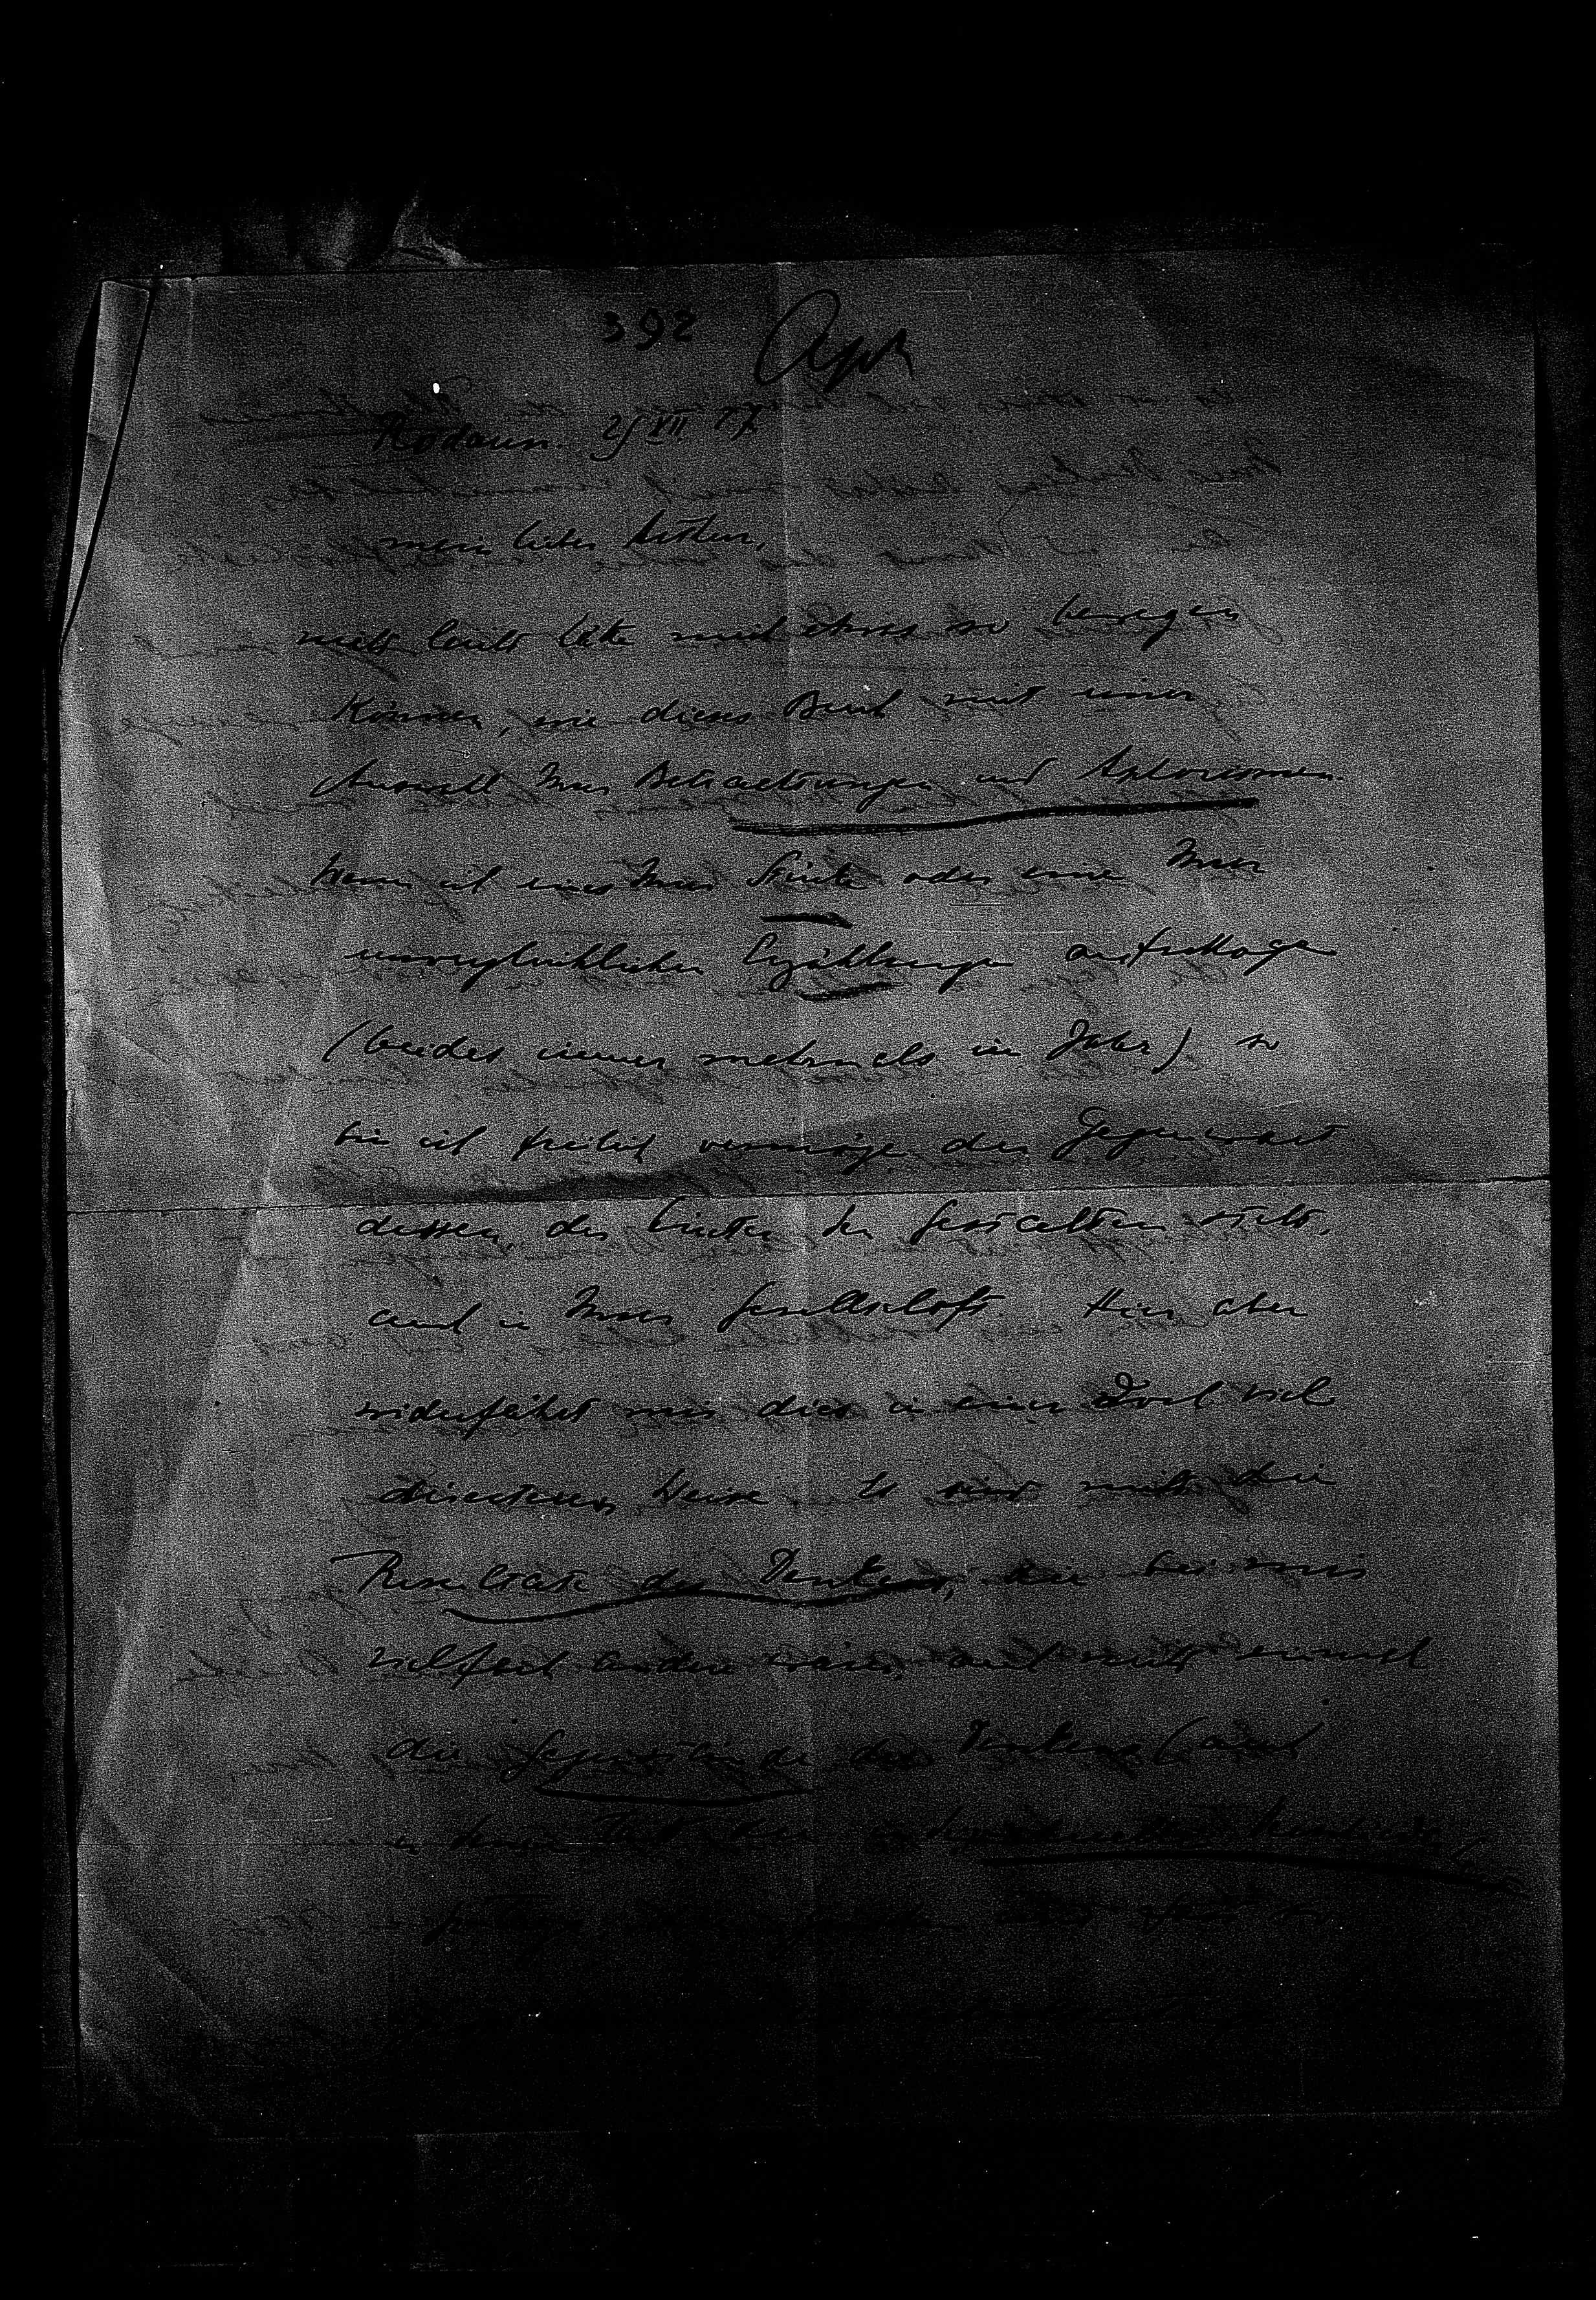 392 Aph
Rodaun. 25 XII. 27.
mein lieber Arthur,
nicht leicht hätte mich etwas so bewegen
können, wie dieses Buch mit einer
Auswahl Ihrer Betrachtungen und Aphorismen.
Wenn ich eines Ihrer Stücke oder eine Ihrer
unvergleichlichen Erzählungen aufschlage
(beides immer mehrmals im Jahr) so
bin ich freilich vermöge der Gegenwart
dessen, der hinter den Gestalten steht,
auch in Ihrer Gesellschaft. Hier aber
widerfährt mir dies in einer doch viel
directeren Weise. Es sind nicht die
Resultate des Denkens, die bei mir
vielfach andere wären, auch nicht einmal
die Gegenstände des Denkens (auch
in dieser